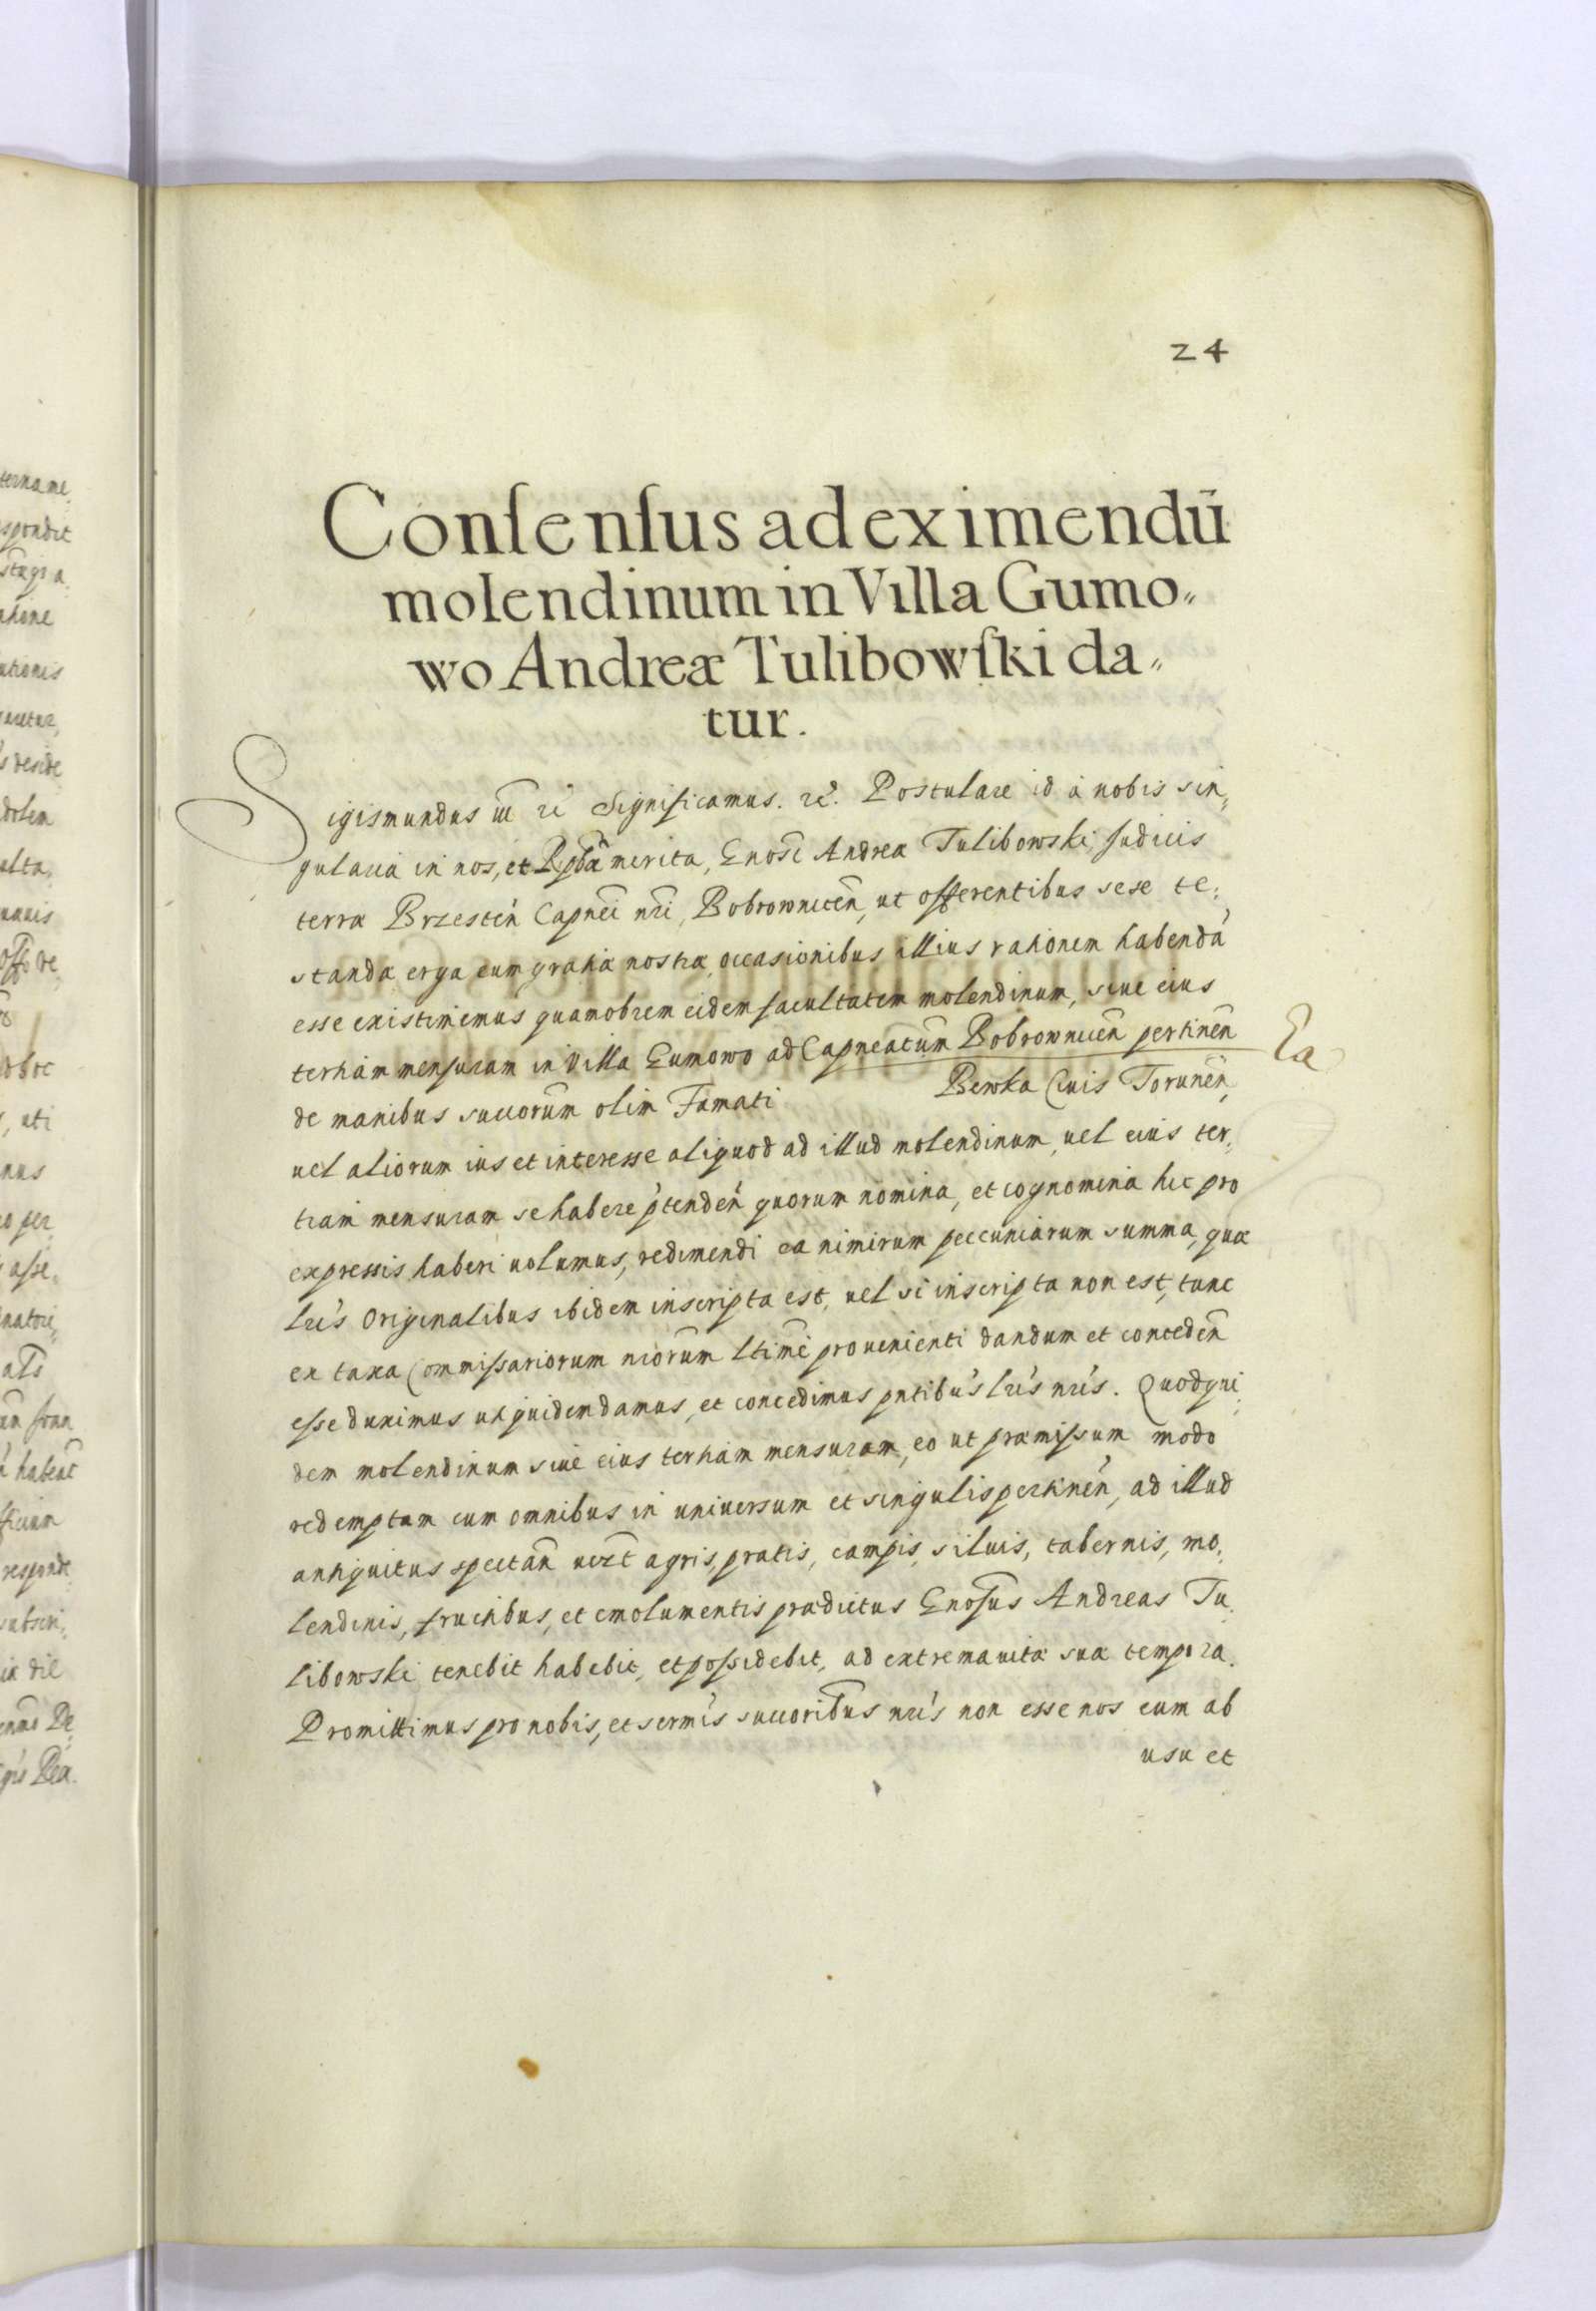 24
Conſenſus ad eximendū
molendinum in Villa Gumo„
wo Andreæ Tulibowſki da„
tur.
Sigismundus iii rē Significamus. rē. Postulare id à nobis sin„
gularia in nos, et Rpbā merita, Gnosi Andreæ Tulibowski Judicis
terræ Brzesteń Capnei nri, Bobrownicen̄, ut offerentibus sese te„
standæ erga eum gratiæ nostræ occasionibus illius rationem habendā
esse existimemus quamobrem eidem facultatem molendinum, siue eius
tertiam mensuram in Villa Gumowo ad Capneatum Bobrownicen̄ pertinen̄
de manibus succorum olim Famati Bewka Ciuis Torunen̄,
uel aliorum ius et interesse aliquod ad illud molendinum, uel eius ter„
tiam mensuram se habere ptenden̄ quorum nomina, et cognomina hic pro
expressis haberi uolumus, redimendi ea nimirum peccuniarum summa, quæ
lris Originalibus ibidem inscripta est, uel si inscripta non est, tunc
ex taxa Commissariorum nrorum ltime prouenienti dandum et conceden̄
esse duximus uti quidem damus, et concedimus pntibus lris nris. Quodqui„
dem molendinum siue eius tertiam mensuram, eo ut præmissum modo
redemptam cum omnibus in uniuersum et singulis pertinen̄, ad illud
antiquitus spectan̄ uizt agris, pratis, campis, siluis, tabernis, mo„
lendinis, fructibus, et emolumentis prædictus Gnosus Andreas Tu„
libowski tenebit habebit, et possidebit, ad extrema uitæ suæ tempora.
Promittimus pro nobis, et sermis succoribus nris non esse nos eum ab
usu et